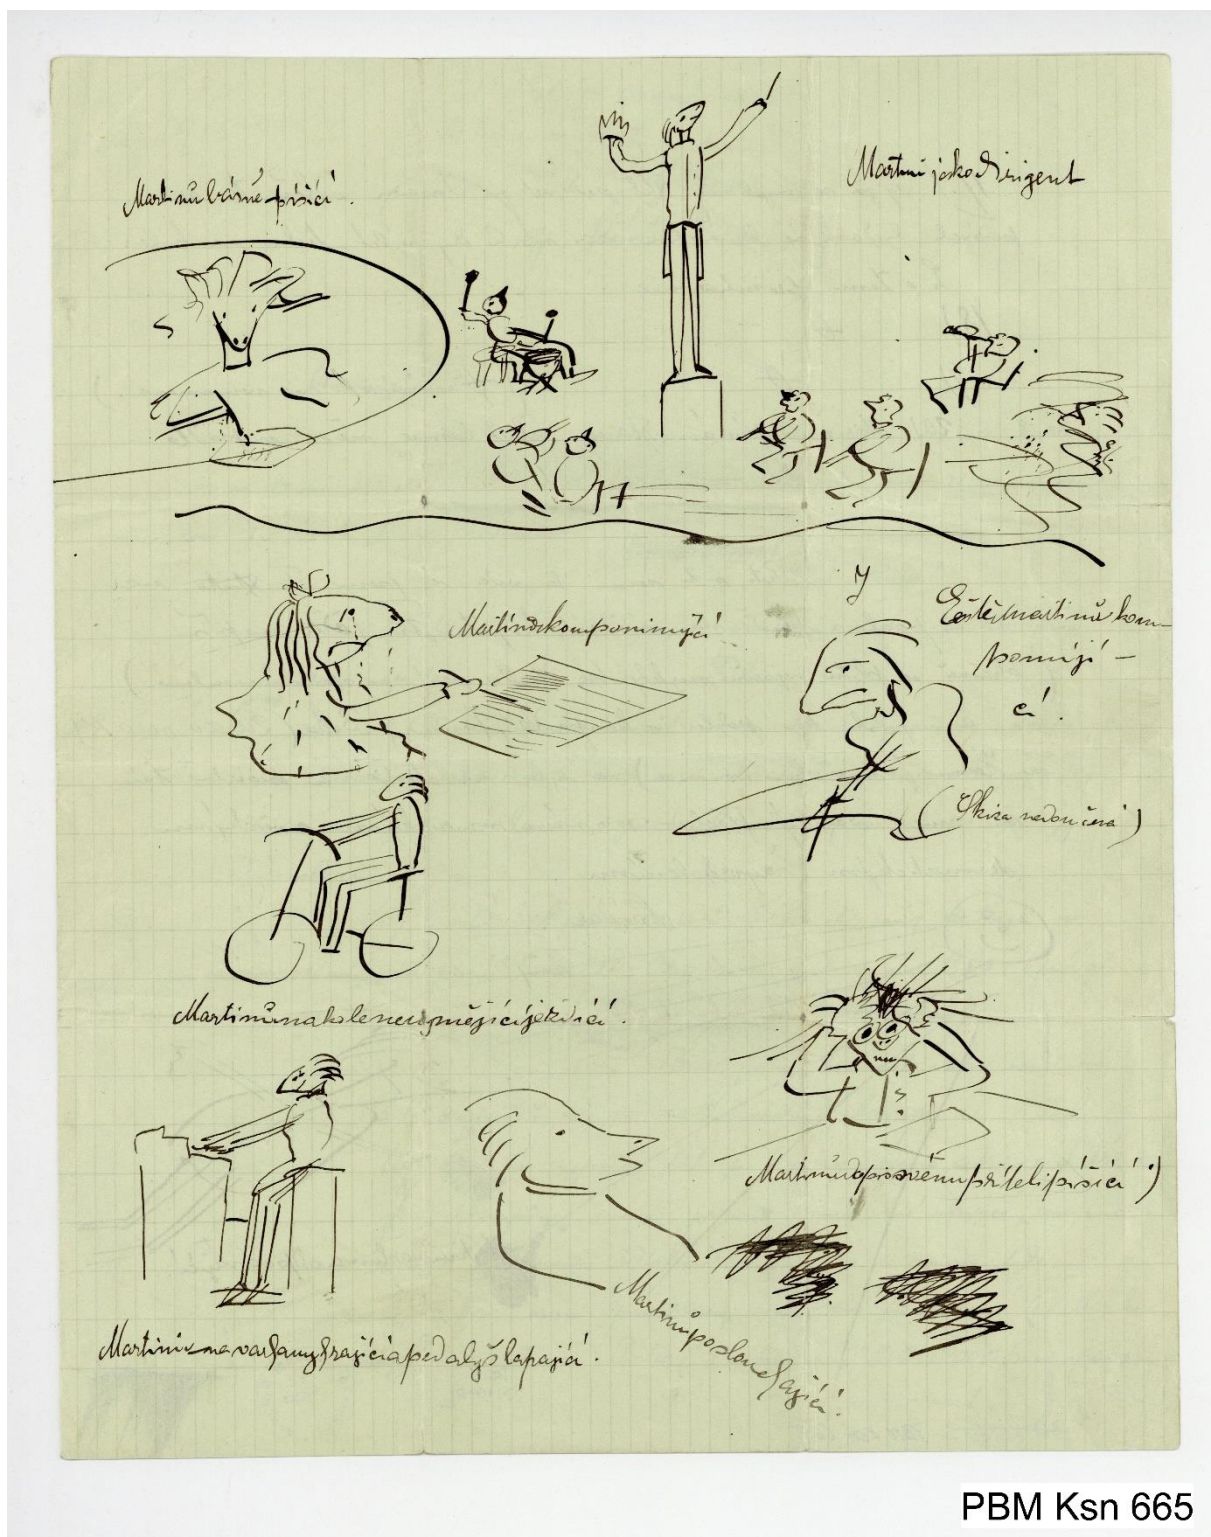 Martinů básně píšící.
Martinů jako dirigent
Martinů komponující
Ještě martinů kom-
ponují-
cí.
(Skiza nedoučená)
Martinů na kole neuměјící jezdící.
Martinů dopis svému příteli píšící)
Martinů na varhany hrající a pedaly šlapající.
Martinů poslouchající.
PBM Ksn 665